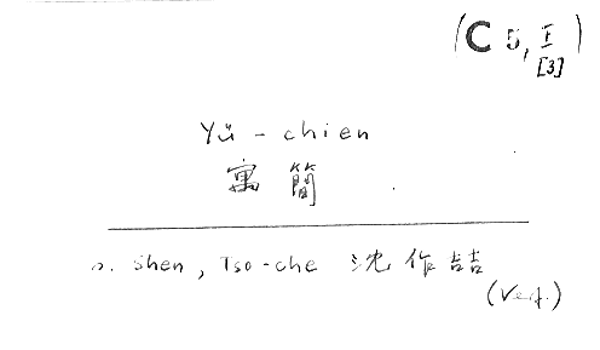 (C 5, I)
[3]
Yü-chien
寓簡
s. Shen, Tso-che 沈作喆
(Verf.)